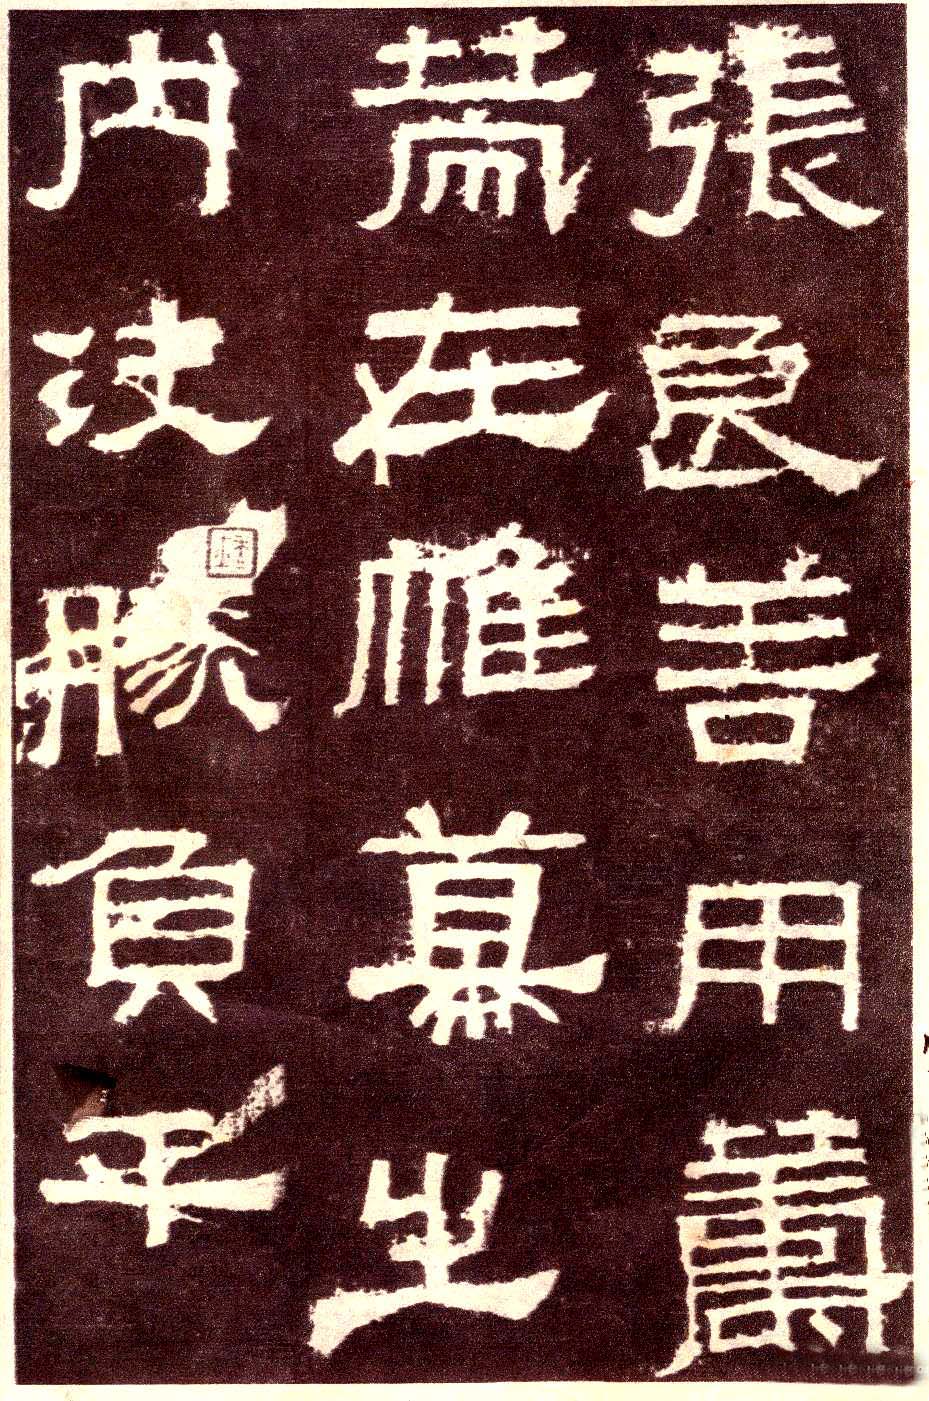 張良善用籌
策在帷幕之
内決勝負千